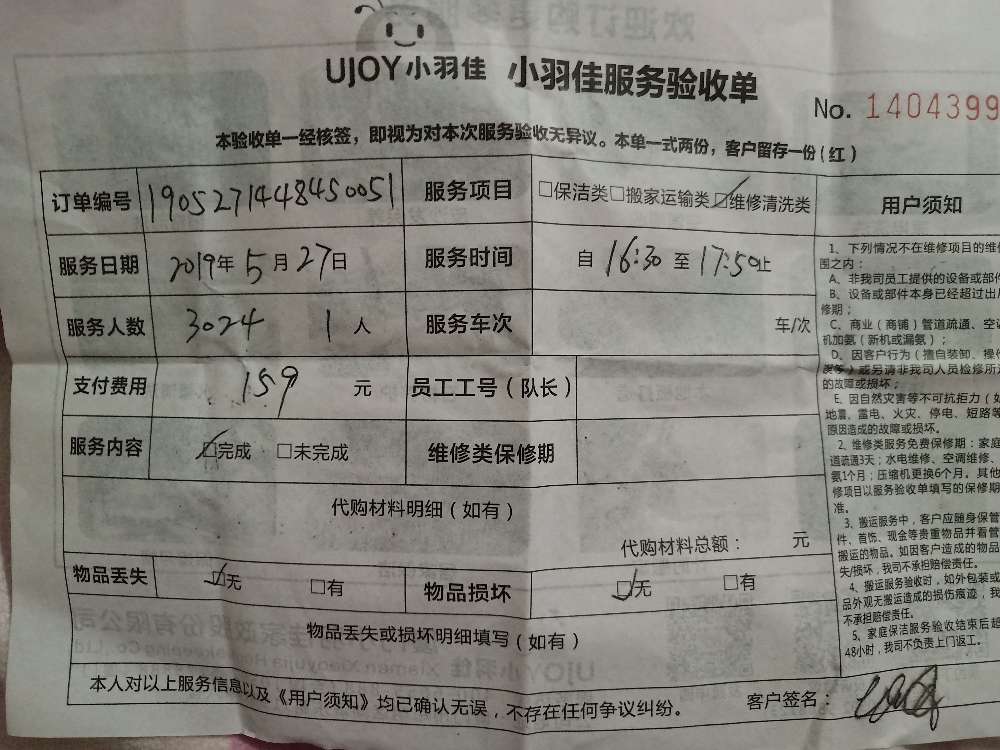 UJOY小羽佳 小羽佳服务验收单
No. 1404399
本验收单一经核签，即视为对本次服务验收无异议。本单一式两份，客户留存一份（红）
订单编号 1905271448450051 服务项目 □保洁类□搬家运输类☑维修清洗类
服务日期 2019年5月27日 服务时间 自16:30至17:50止
服务人数 3024 1人 服务车次 车/次
支付费用 159元 员工工号（队长）
服务内容 ☑完成 □未完成 维修类保修期
代购材料明细（如有）
代购材料总额： 元
物品丢失 ☑无 □有 物品损坏 ☑无 □有
物品丢失或损坏明细填写（如有）
本人对以上服务信息以及《用户须知》均已确认无误，不存在任何争议纠纷。 客户签名：
用户须知
1、下列情况不在维修项目的维
围之内：
A、非我司员工提供的设备或部件
B、设备或部件本身已经超过出
修期；
C、商业（商铺）管道疏通、空
机加氨（新机或漏氨）；
D、因客户行为（擅自装卸、操
类多）或另请非我司人员检修所
的故障或损坏；
E、因自然灾害等不可抗拒力（如
地震、雷电、火灾、停电、短路等
原因造成的故障或损坏。
2、维修类服务免费保修期：家庭
道疏通3天；水电维修、空调维修、
氨1个月；压缩机更换6个月。其他
修项目以服务验收单填写的保修期
准。
3、搬运服务中，客户应随身保管
件、首饰、现金等贵重物品并看管
搬运的物品。如因客户造成的物品
失/损坏，我司不承担赔偿责任。
4、搬运服务验收时，如外包装或
品外观无搬运造成的损伤痕迹，我
不承担赔偿责任。
5、家庭保洁服务验收结束后超
48小时，我司不负责上门返工。